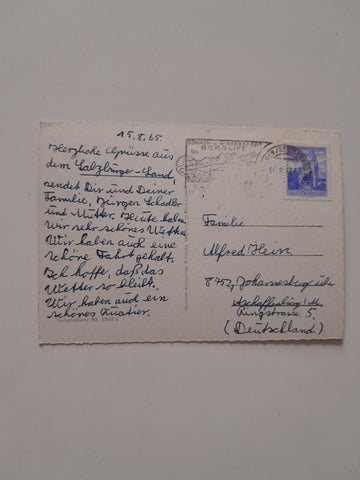 15.8.65.
Herzliche Grüsse aus
dem Salzburger-Land,
sendet Dir und Deiner
Familie, Jürgen Schadler
und Mutter. Heute haben
Wir sehr schönes Wetter.
Wir haben auch eine
schöne Fahrt gehabt.
Ich hoffe, daß das
Wetter so bleibt.
Wir haben auch ein
schönes Quatier.
SOMMER- u. WINTERSPORT
BERGLIFT
Familie
Alfred Hein
8752 Johannesberg über
Aschaffenburg a/M
Ringstrasse 5.
(Deutschland)